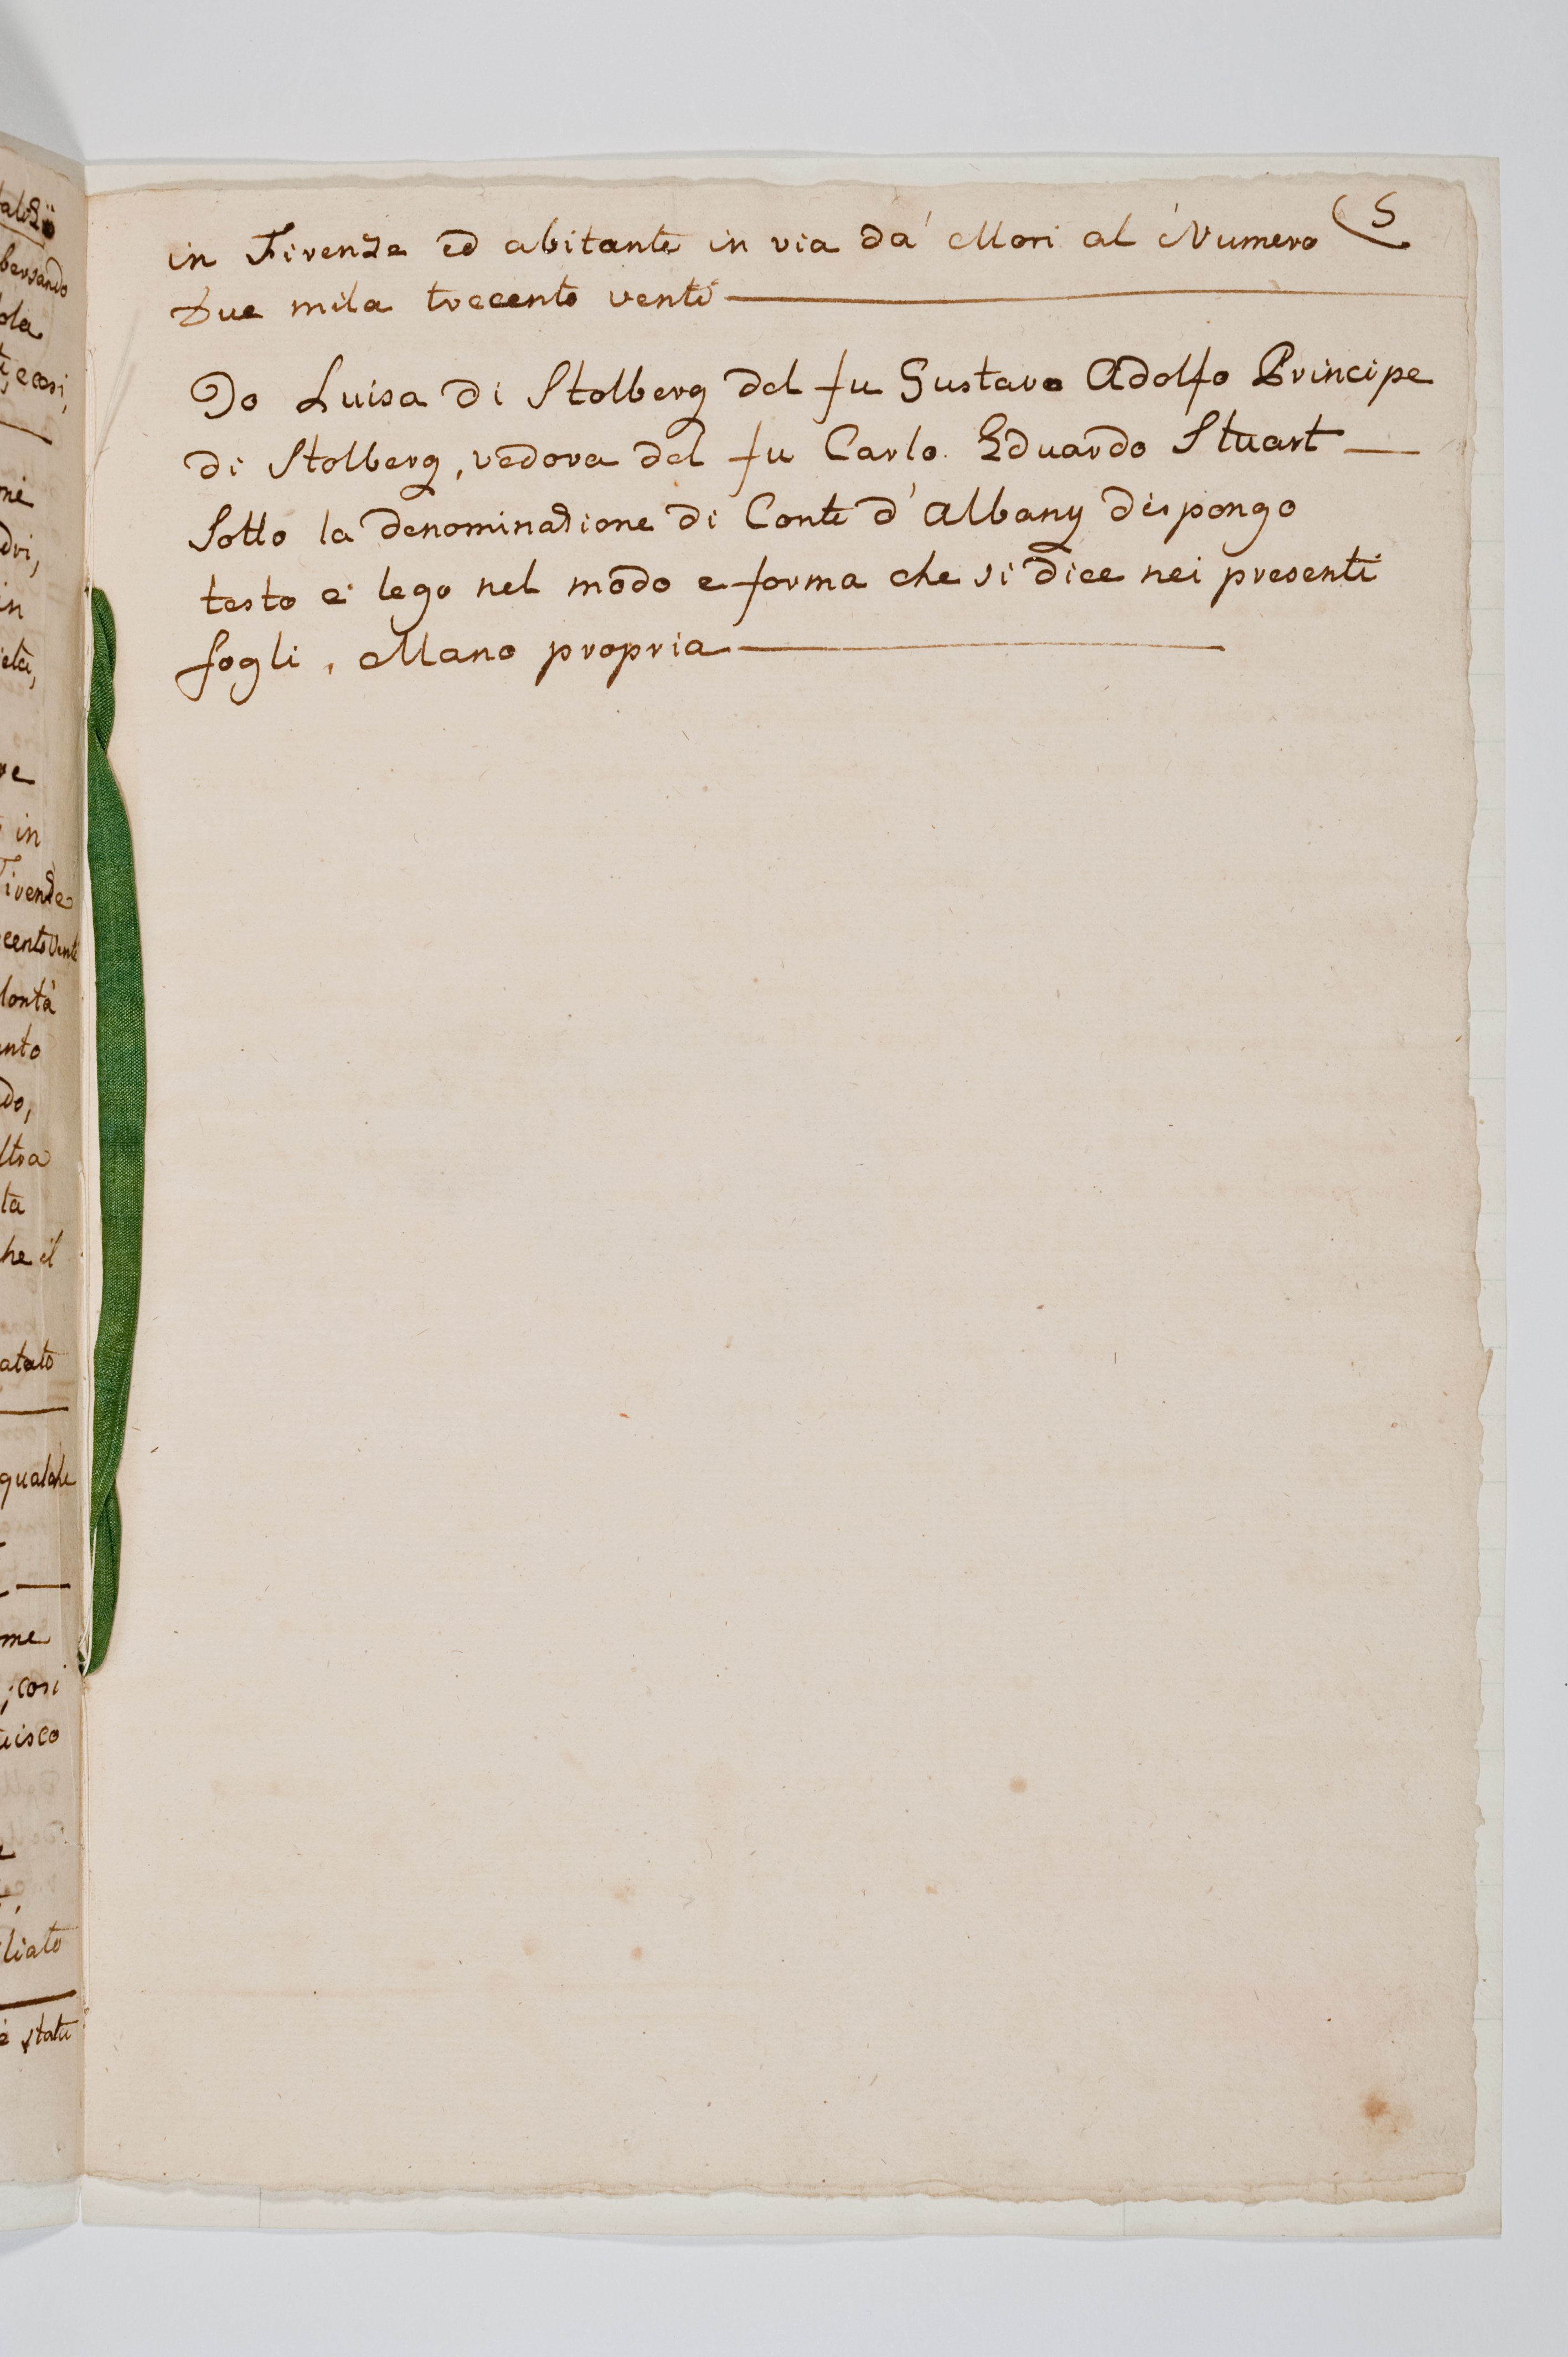 alità
bersando
ola
ti, e cosi,
ni
dri,
in
età,
re
in
Firenze
cento venti
lontà
ento
do,
ltra
ta
he il
atato
qualche
me
; cosi
uisco
liato
è stati
5
in Firenze ed abitante in via da' Mori al Numero
Due mila trecento venti
Io Luisa di Stolberg del fu Gustavo Adolfo Principe
di Stolberg, vedova del fu Carlo Eduardo Stuart
Sotto la denominazione di Conte d'Albany dispongo
testo e lego nel modo e forma che si dice nei presenti
fogli, Mano propria